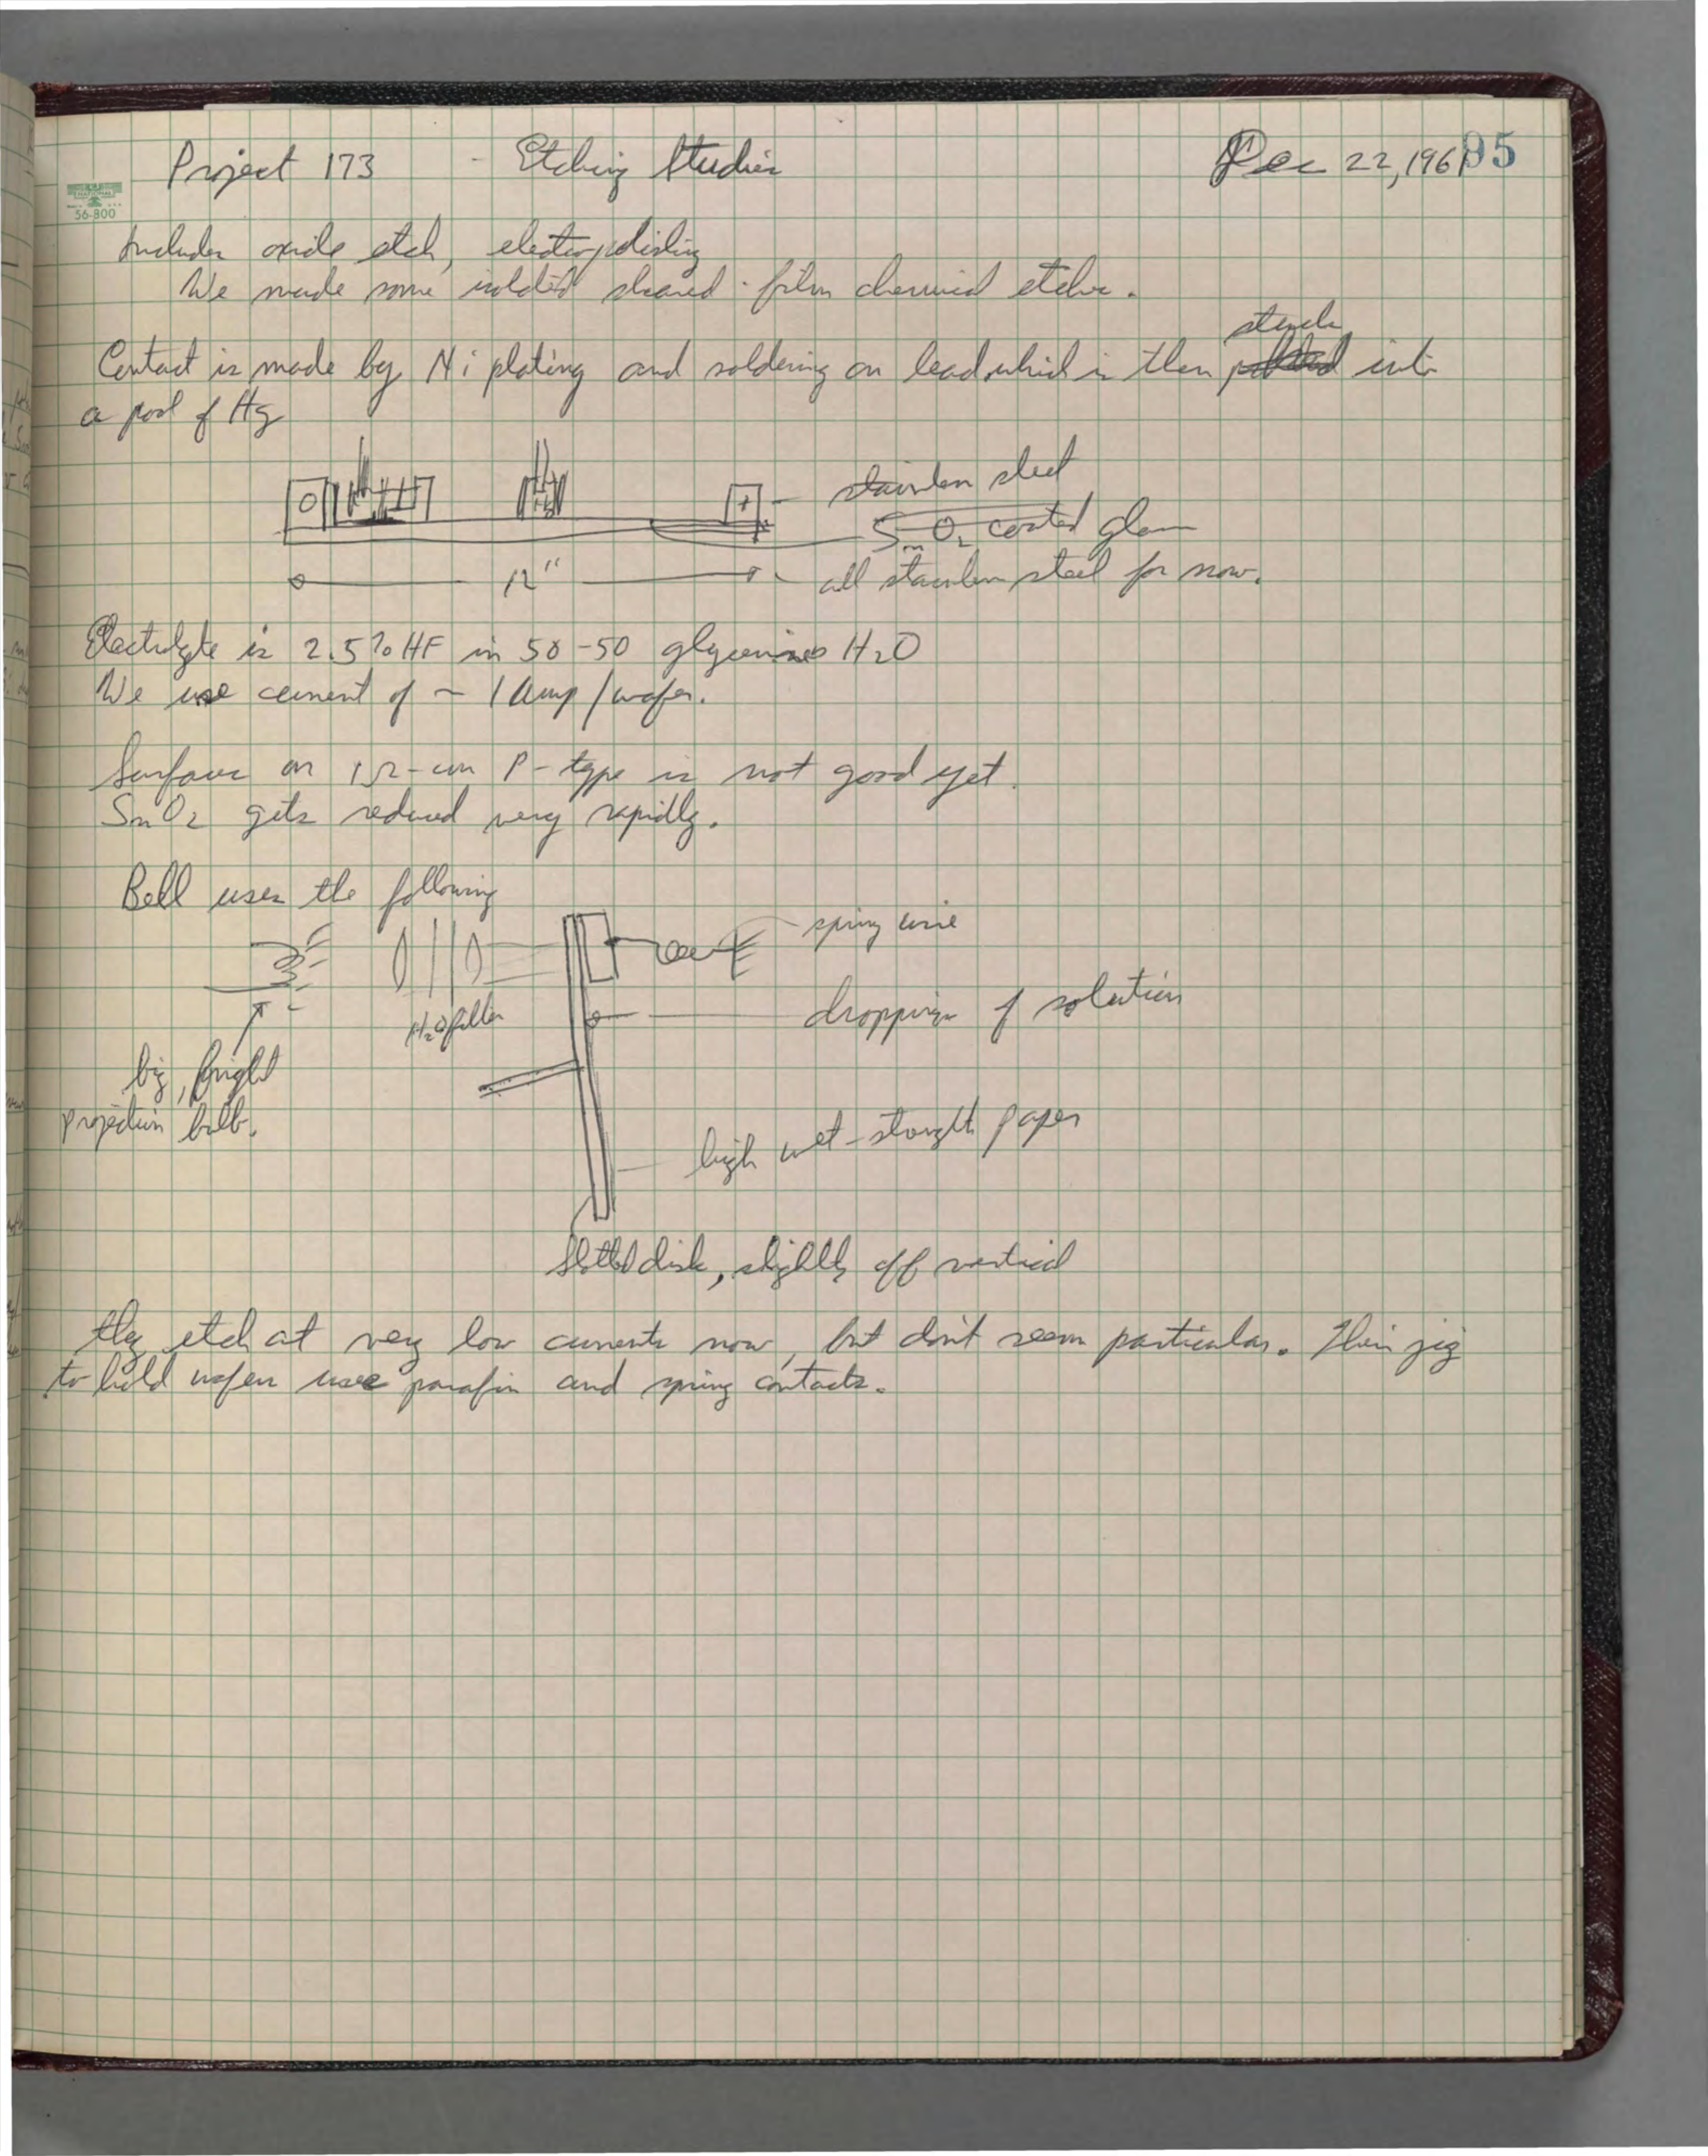 Project 173 - Etching Studies Dec 22, 1961 95
56-800
Includes oxide etch, electropolishing
We made some isolated sheared-film chemical etches.
stuck
Contact is made by Ni plating and soldering on lead which is then into
a pool of Hg
stainless steel
SnO2 coated glass
12"
all stainless steel for now.
Electrolyte is 2.5% HF in 50-50 glycerine H2O
We use current of ~ 1 Amp/wafer.
Surface on 1Ω-cm P-type is not good yet.
SnO2 gets reduced very rapidly.
Bell uses the following
spring wire
dropping of solution
H2O filter
big, bright
projection bulb.
high wet-strength paper
Slotted disk, slightly off vertical
They etch at very low currents now, but don't seem particular. Their jig
to hold wafers uses parafin and spring contacts.